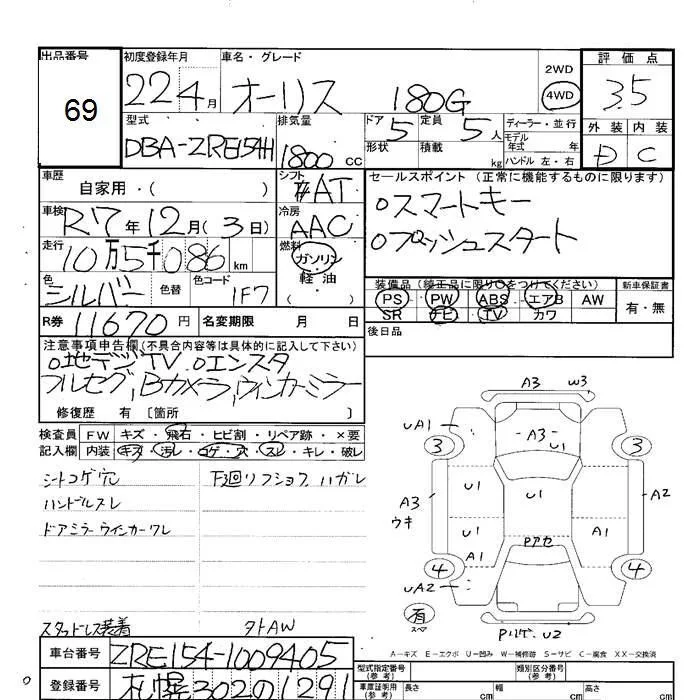 出品番号
69
初度登録年月
22 4月
車名・グレード
オーリス 180G
2WD
4WD
評価点
3.5
外装 内装
D C
型式
DBA-ZRE154H
排気量
1800 CC
ドア 5
定員 5人
ディーラー・並行
モデル年式 年式
形状
積載 kg
ハンドル 左・右
車歴
自家用・( )
シフト
AT
セールスポイント (正常に機能するものに限ります)
○スマートキー
○プッシュスタート
車検
R7年12月(3日)
冷房
AAC
走行
10万5千086km
燃料
ガソリン
軽・油
( )
色
シルバー
色替
色コード
1F7
装備品 (純正品に限り○をつけてください)
PS PW ABS エアB AW
SR ナビ TV カワ
新車保証書
有・無
R券 11670円
名変期限 月 日
後日品
注意事項申告欄(不具合内容等は具体的に記入して下さい)
○地デジTV ○エンスタ
フルセグ,Bカメラ,ウィンカーミラー
修復歴 有 〔箇所 〕
検査員
記入欄
FW キズ・飛石・ヒビ割・リペア跡・×要
内装 キズ・汚レ・コゲ・穴・スレ・キレ・破レ
シートコゲ穴
ハンドルスレ
ドアミラーウインカーワレ
下廻リフショク ハガレ
スタッドレス装着
タトAW
A3 W3
UA1
A3 U1
3 3
A3
ウキ
U1 U1
A2
U1
A1 A1
Pアセ
4 4
UA2
有
スペア
Pリゲ, U2
A-キズ E-エクボ U-凹み W-補修跡 S-サビ C-腐食 XX-交換済
車台番号 ZRE154-1009405
登録番号 札幌302の1291
型式指定番号
(参考)
類別区分番号
(参考)
車庫証明用
(参考)
長さ cm
幅 cm
高さ cm